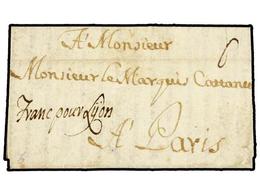 A' Monsieur
6
Monsieur le Marquis Cattaneo
Franc pour Lyon
A' Paris